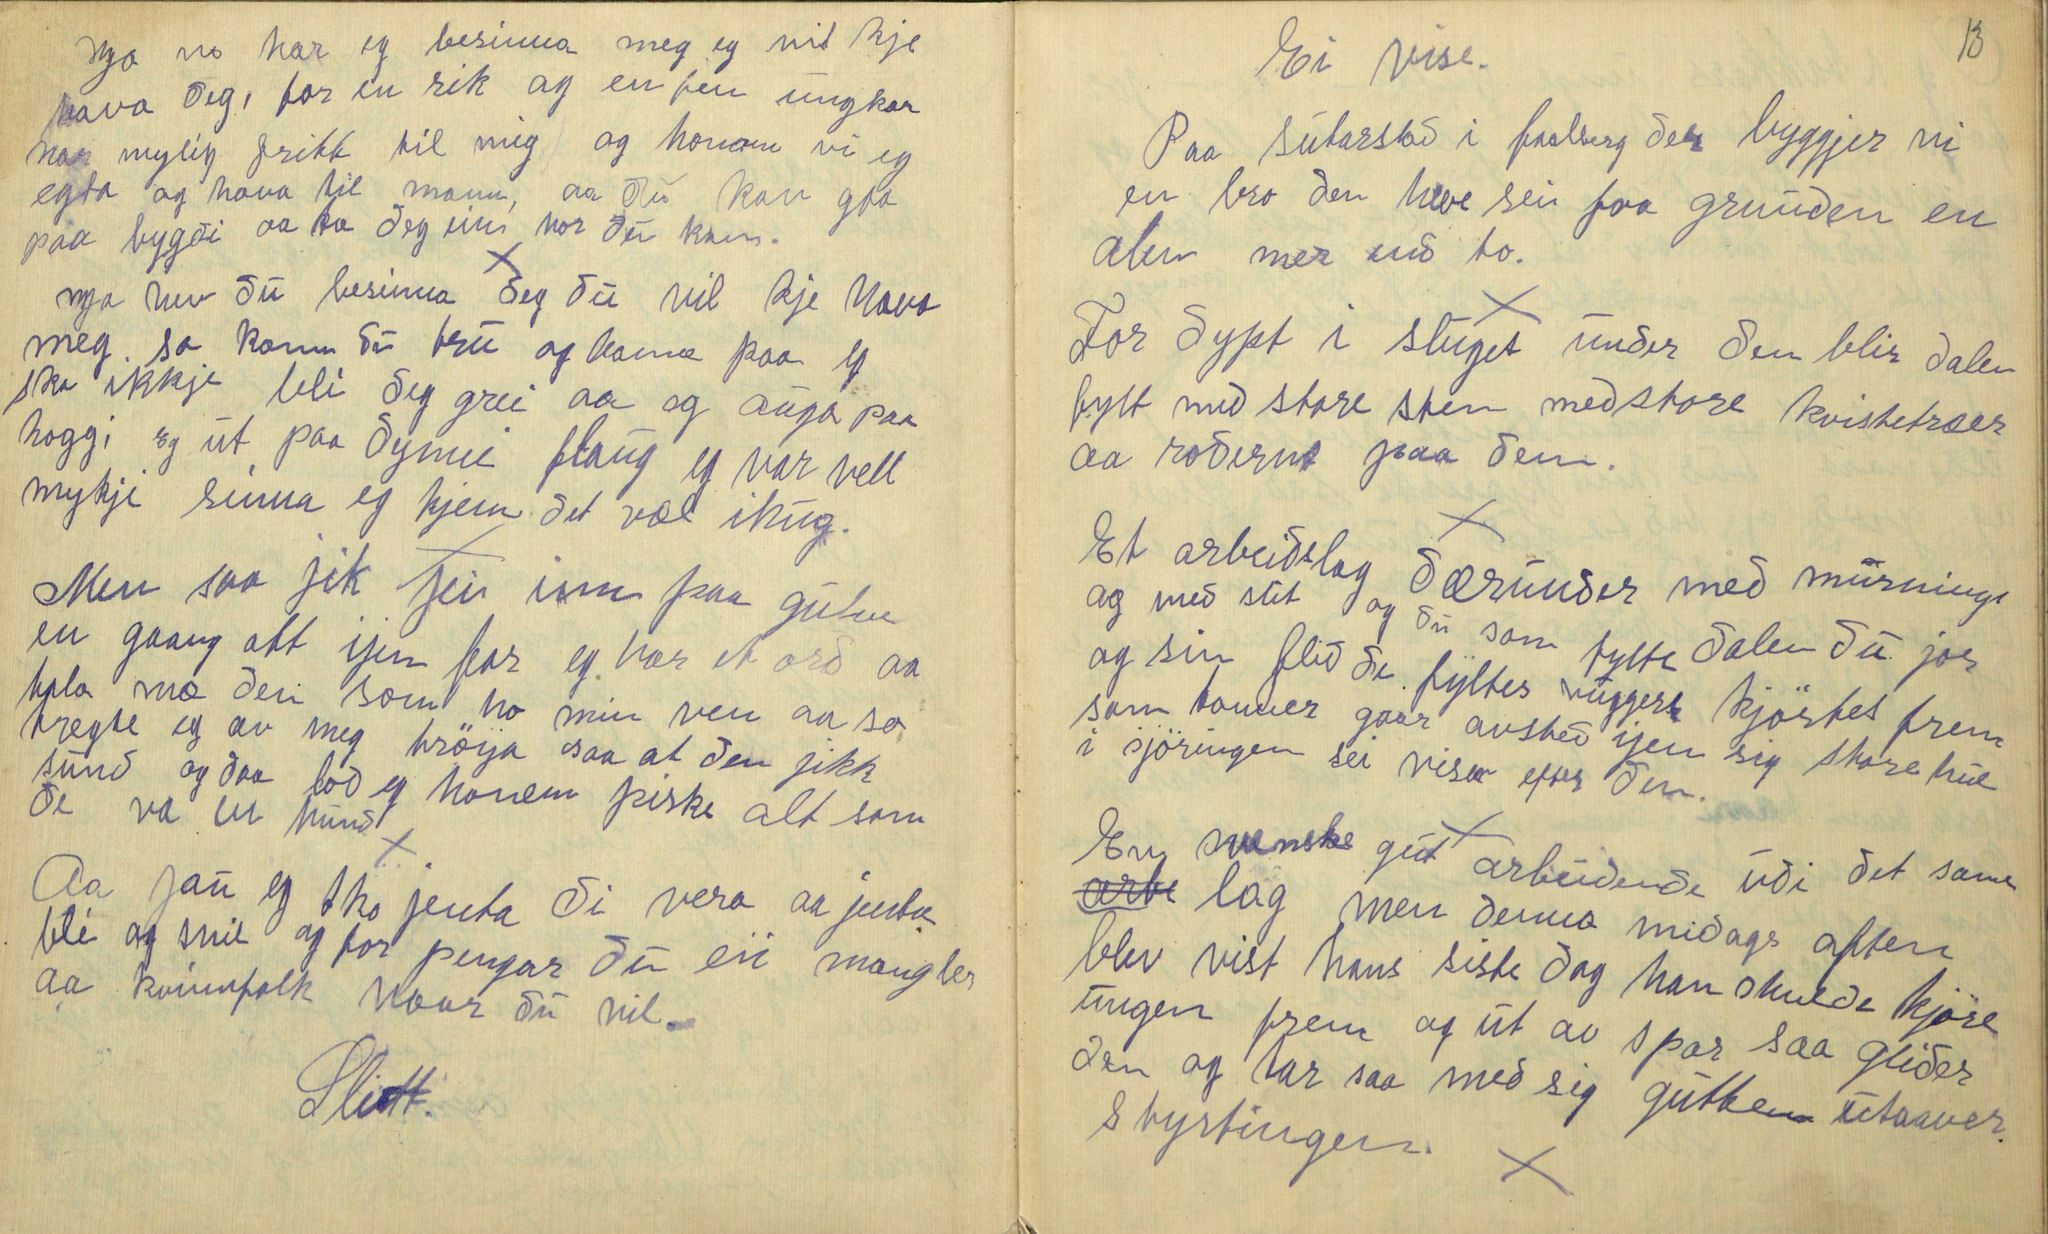 nya no har eg besinna meg eg vil kje
hava deg, for en rik og en fen ungkar
har mylig fritt til mig og honom vi eg
egta og hava til mann, aa du kan gaa
paa bygdi aa ta deg ein hor du kan.
X
nya hev du besinna deg du vil kje hava
meg. so kann du tru og kanna paa eg
ska ikkje bli deg grei aa og auga paa
hoggi eg ut paa dynni flaug eg var vell
mykji sinna eg kjem det væl ihug.
X
Men saa jik jei inn paa gulve
en gaang att ijen for eg har et ord aa
tala mæ den som ho min ven aa so
tregte eg av meg tröija saa at den jikk
sund og daa lod eg honem piske alt som
de va en hund
X
Aa jau eg sko jenta di vera aa jenta
bli og snil og for pengar du eii mangler
aa kvinnfolk naar du vil.
Slutt.
13
Ei vise.
Paa sutarstad i faaberg der byggjer vi
en bro den heve sei fraa grunden en
alen mer end to.
X
For dypt i stuget under den blir dalen
fylt med store sten med store kvistetræer
aa roderne paa dem.
X
Et arbeidslag dærunder med murninge
og med slit og du som fylte dalen du jor
og sin flid de fyltes vuggerte kjörtes frem
som tonner gaar avsted ijen sig store hul
i sjöringen sei viser efter dem.
X
En svenske gut arbeidende udi det same
arbe lag men denna midags aften
blev vist hans siste dag han skulde kjöre
ungen frem og ut av spor saa glider
den og tar saa med sig gutten utaaver
styrtingen.
X